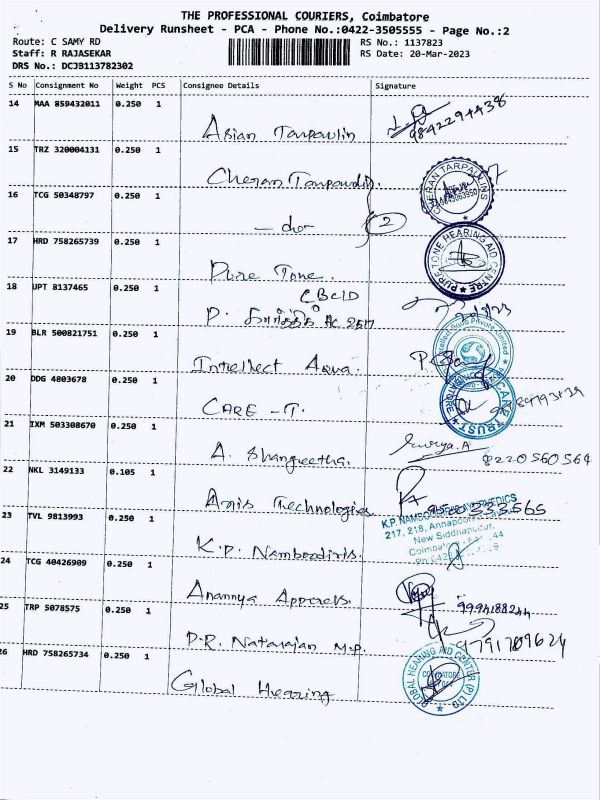 THE PROFESSIONAL COURIERS, Coimbatore
Delivery Runsheet - PCA - Phone No.:0422-3505555 - Page No.:2
Route: C SAMY RD
RS No.: 1137823
Staff: R RAJASEKAR
RS Date: 20-Mar-2023
DRS No.: DCJB113782302
S No Consignment No Weight PCS Consignee Details Signature
14 MAA 859432011 0.250 1
Asian Tarpaulin
9842294438
15 TRZ 320004131 0.250 1
Cheran Tarpaulin.
CHERAN TARPAULINS
16 TCG 50348797 0.250 1
- do - 2
17 HRD 758265739 0.250 1
Pure Tone.
PURETONE HEARING AID CENTRE
18 UPT 8137465 0.250 1
CBCID
P. கார்த்திக் HC 2517
19 BLR 500821751 0.250 1
Intellect Aqua.
20 DDG 4803678 0.250 1
CARE - T.
CARE TRUST
COIMBATORE
21 IXM 503308670 0.250 1
A. Shangeetha.
Surya.A
8220560564
22 NKL 3149133 0.105 1
Arais Technologies.
23 TVL 9813993 0.250 1
K.P. Namboodiris.
217, 218, Annapoorna
New Siddhapudur,
24 TCG 40426909 0.250 1
Anannya Apparels.
9994188244
25 TRP 5078575 0.250 1
P.R. Natarajan M.P.
26 HRD 758265734 0.250 1
Global Hearing
GLOBAL HEARING AID CENTER (P) LTD
COIMBATORE